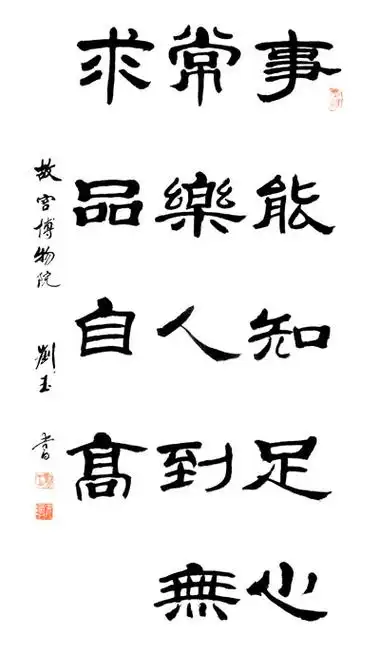 事能知足心
常樂人到無
求品自高
故宮博物院 劉玉 書